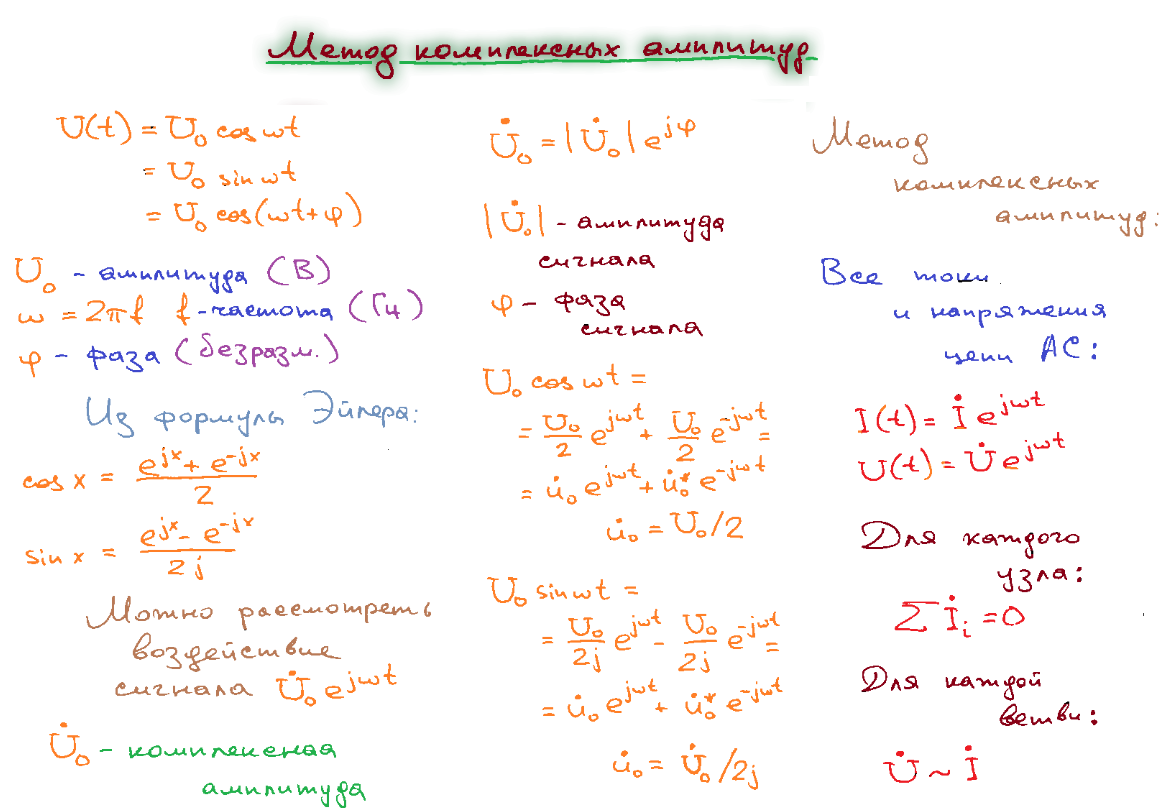 Метод комплексных амплитуд
U(t) = U₀ cos ωt
= U₀ sin ωt
= U₀ cos(ωt+φ)
U₀ - амплитуда (В)
ω = 2πf f - частота (Гц)
φ - фаза (безразм.)
Из формулы Эйлера:
cos x = (e^{jx} + e^{-jx})/2
sin x = (e^{jx} - e^{-jx})/2j
Можно рассмотреть
воздействие
сигнала U̇₀ e^{jωt}
U̇₀ - комплексная
амплитуда
U̇₀ = |U̇₀| e^{jφ}
|U̇₀| - амплитуда
сигнала
φ - фаза
сигнала
U₀ cos ωt =
= U₀/2 e^{jωt} + U₀/2 e^{-jωt} =
= u̇₀ e^{jωt} + u̇₀* e^{-jωt}
u̇₀ = U₀/2
U₀ sin ωt =
= U₀/2j e^{jωt} - U₀/2j e^{-jωt} =
= u̇₀ e^{jωt} + u̇₀* e^{-jωt}
u̇₀ = U̇₀/2j
Метод
комплексных
амплитуд:
Все токи
и напряжения
цепи AC:
I(t) = İ e^{jωt}
U(t) = U̇ e^{jωt}
Для каждого
узла:
Σ İᵢ = 0
Для каждой
ветви:
U̇ ~ İ